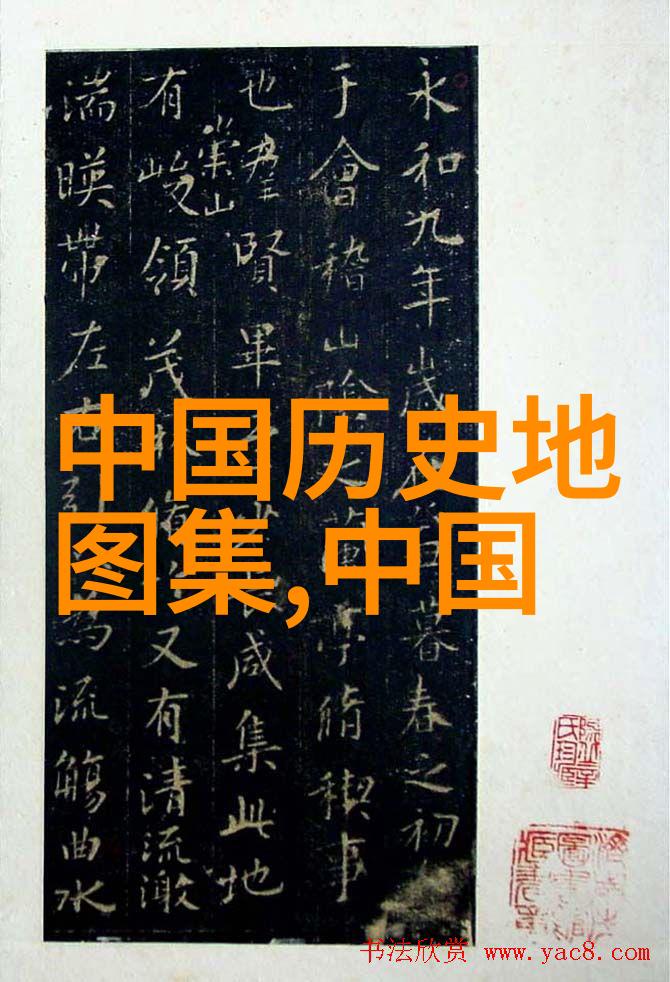 永和九年歲暮春之初
于會稽山陰之蘭亭脩稧事
也羣賢畢咸集此地
有崇山峻領茂林又有清流激
湍暎帶左右為流觴曲水
中国历史地
图集,中国
书法欣赏 www.yac8.com